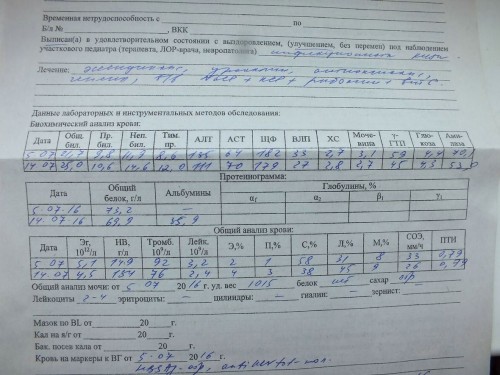 Временная нетрудоспособность с по
Б/л № , ВКК
Выписан(а) в удовлетворительном состоянии с выздоровлением, (улучшением, без перемен) под наблюдением
участкового педиатра (терапевта, ЛОР-врача, невропатолога)
Лечение:
Данные лабораторных и инструментальных методов обследования:
Биохимический анализ крови:
Дата Общ. бил. Пр. бил. Неп. бил. Тим. пр. АЛТ АСТ ЩФ ВЛП ХС Моче-вина γ-ГТП Глю-коза Ами-лаза
5.07 21,7 9,8 11,9 8,6 67 182 33 2,7 3,1 59 4,4 70,1
14.07 25,0 10,6 14,6 12,0 111 70 179 27 2,8 2,7 45 4,3 52,0
Протеинограмма:
Дата Общий белок, г/л Альбумины Глобулины, %
α1 α2 β1 γ1
5.07.16 73,2 —
14.07.16 69,9 35,9
Общий анализ крови:
Дата Эг, 10¹²/л НВ, г/л Тромб. 10⁹/л Лейк. 10⁹/л Э,% П,% С,% Л,% М,% СОЭ, мм/ч ПТИ
5.07 5,1 149 92 3,2 2 1 58 31 8 33 0,79
14.07 4,5 151 76 2,4 4 3 38 45 9 26 0,79
Общий анализ мочи: от 5 07 2016 г. уд. вес 1015 белок сахар отр
Лейкоциты 2-4 эритроциты: — цилиндры: — гиалин: — зернист:
Мазок по BL от 20 г.
Кал на я/г от 20 г.
Бак. посев кала от 20 г.
Кровь на маркеры к ВГ от 5.07 2016 г.